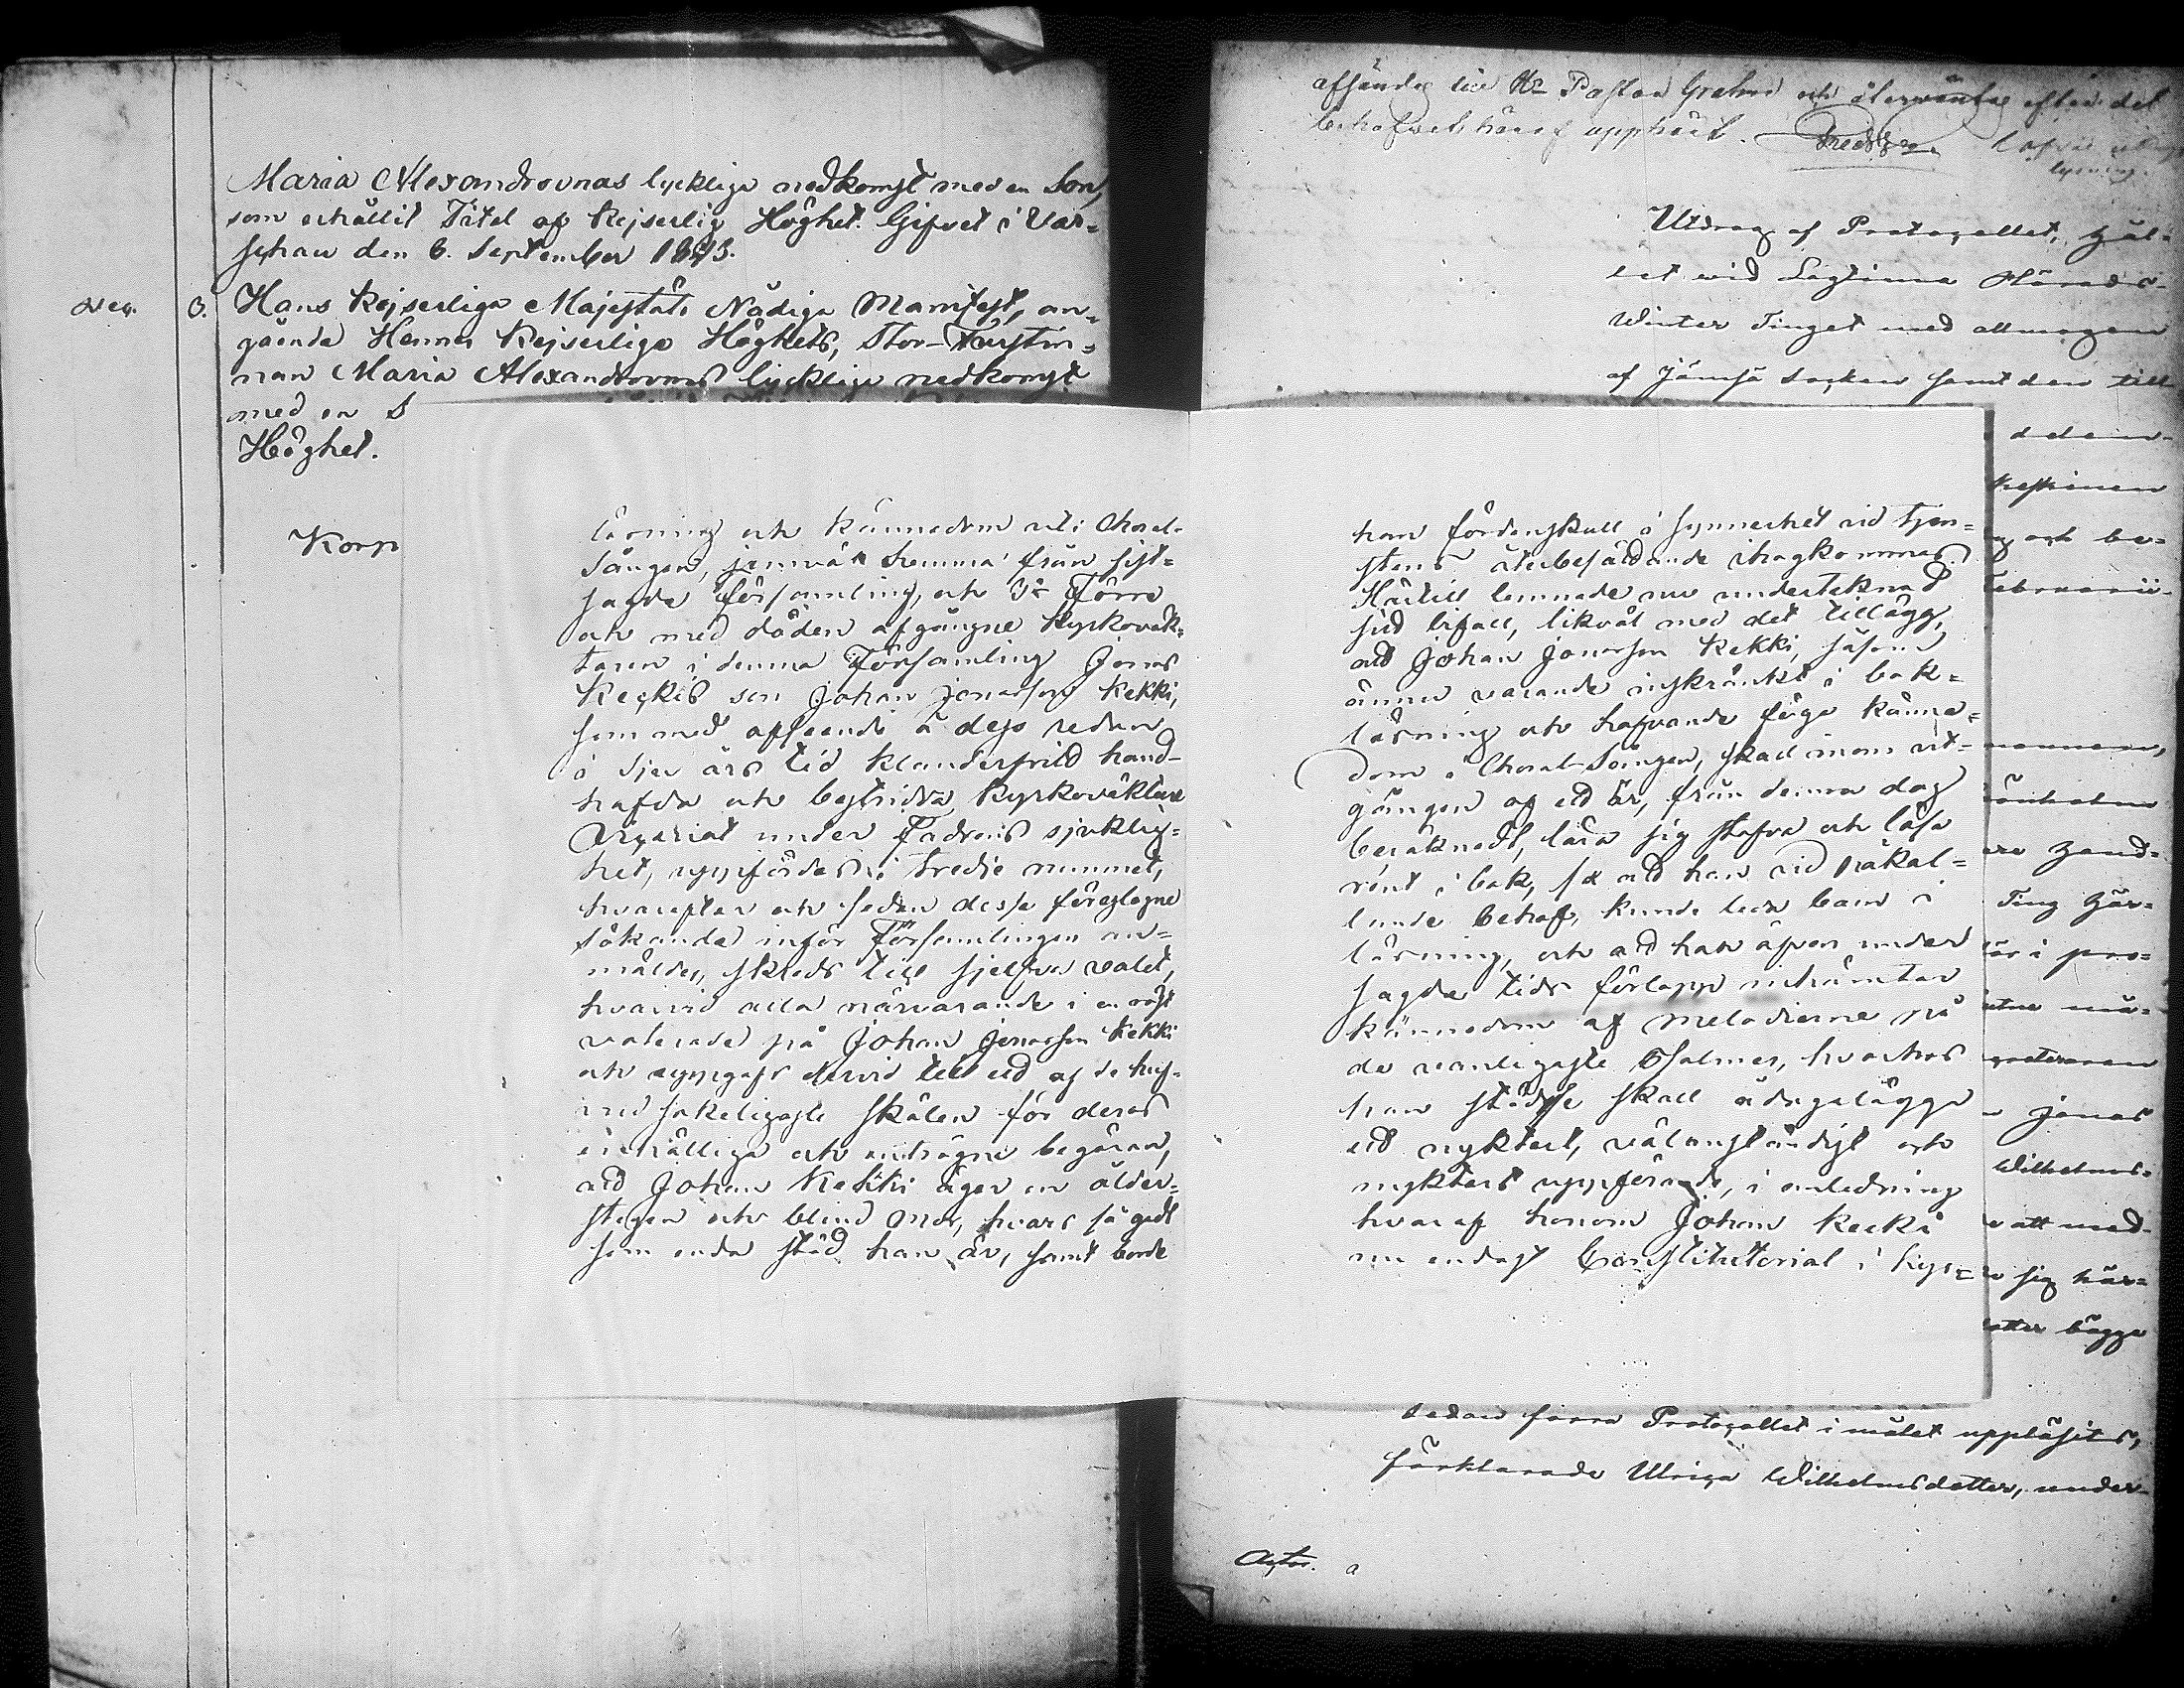 Maria Alexandrovnas lyckliga nedkomst med en Son,
som erhållit Titel af Kejserlig Höghet. Gifvet i Var-
schau den 6. September 1843.
Dec. O. Hans Kejserliga Majestäts Nådiga Manifest, an-
gående Hennes Kejserliga Höghets, Stor-Furstin-
nan Maria Alexandrovnas lyckliga nedkomst
med en S
Höghet.
Korp
läsning och kännedom uti Choral-
Sången, jemväl hemma från sist-
sagde församling, och 3o Förre
och med döden afgångne Kyrkoväk-
taren i denna Församling Jonas
Keckis son Johan Jonasson Kekki,
som med afseende å dess redan
i sju års tid klanderfritt hand-
hafda och bestridda Kyrkoväktare
Vicariat under Fadrens sjuklig-
het, uppfördes i tredje rummet,
hvarefter och sedan desse föreslagne
sökande inför Församlingen an-
mälder, skreds till sjelfva valet,
hvarvid alla närvarande i en röst
voterade på Johan Jonasson Kekki
och uppgafs dervid till ett af de huf-
vudsakeligaste skälen för deras
enhälliga och enträgne begäran,
att Johan Kekki äger en ålder-
stegen och blind mor, hvars så godt
som enda stöd han är, samt borde
han fördenskull i synnerhet vid tjen-
stens återbesättande ihågkommas.
Härtill lemnade nu undertecknad
sitt bifall, likväl med det tillägg,
att Johan Jonasson Kekki, såsom
ännu varande inskränkt i bok-
läsning och hafvande föga känne-
dom i Choral-Sången, skall inom ut-
gången af ett år, från denna dag
beräknadt, lära sig stafva och läsa
rent i bok, så att han vid påkal-
lande behof, kunde leda barn i
läsning, och att han äfven under
sagde tids förlopp inhämtar
kännedom af melodierne på
de vanligaste Psalmer, hvarhos
han städse skall ådagalägga
ett nyktert, välanständigt och
nyktert uppförande, i anledning
hvaraf honom Johan Kecki
nu endast Constitutorial i kyr-
afsändes till Hr Pastor och återväntas efter det
behofvet häraf upphört.
Utdrag af Protocollet, hål-
let vid Lagtima Härads-
Winter Tinget med allmogen
af Jämsä Socken samt den till
och be-
Februarii
Ting hår-
Jonas
Wilhelms-
att med-
sig här-
bägge
sedan förra Protocollet i målet uppläsits,
förklarade Ulrica Wilhelmsdotter, under-
Actor. a